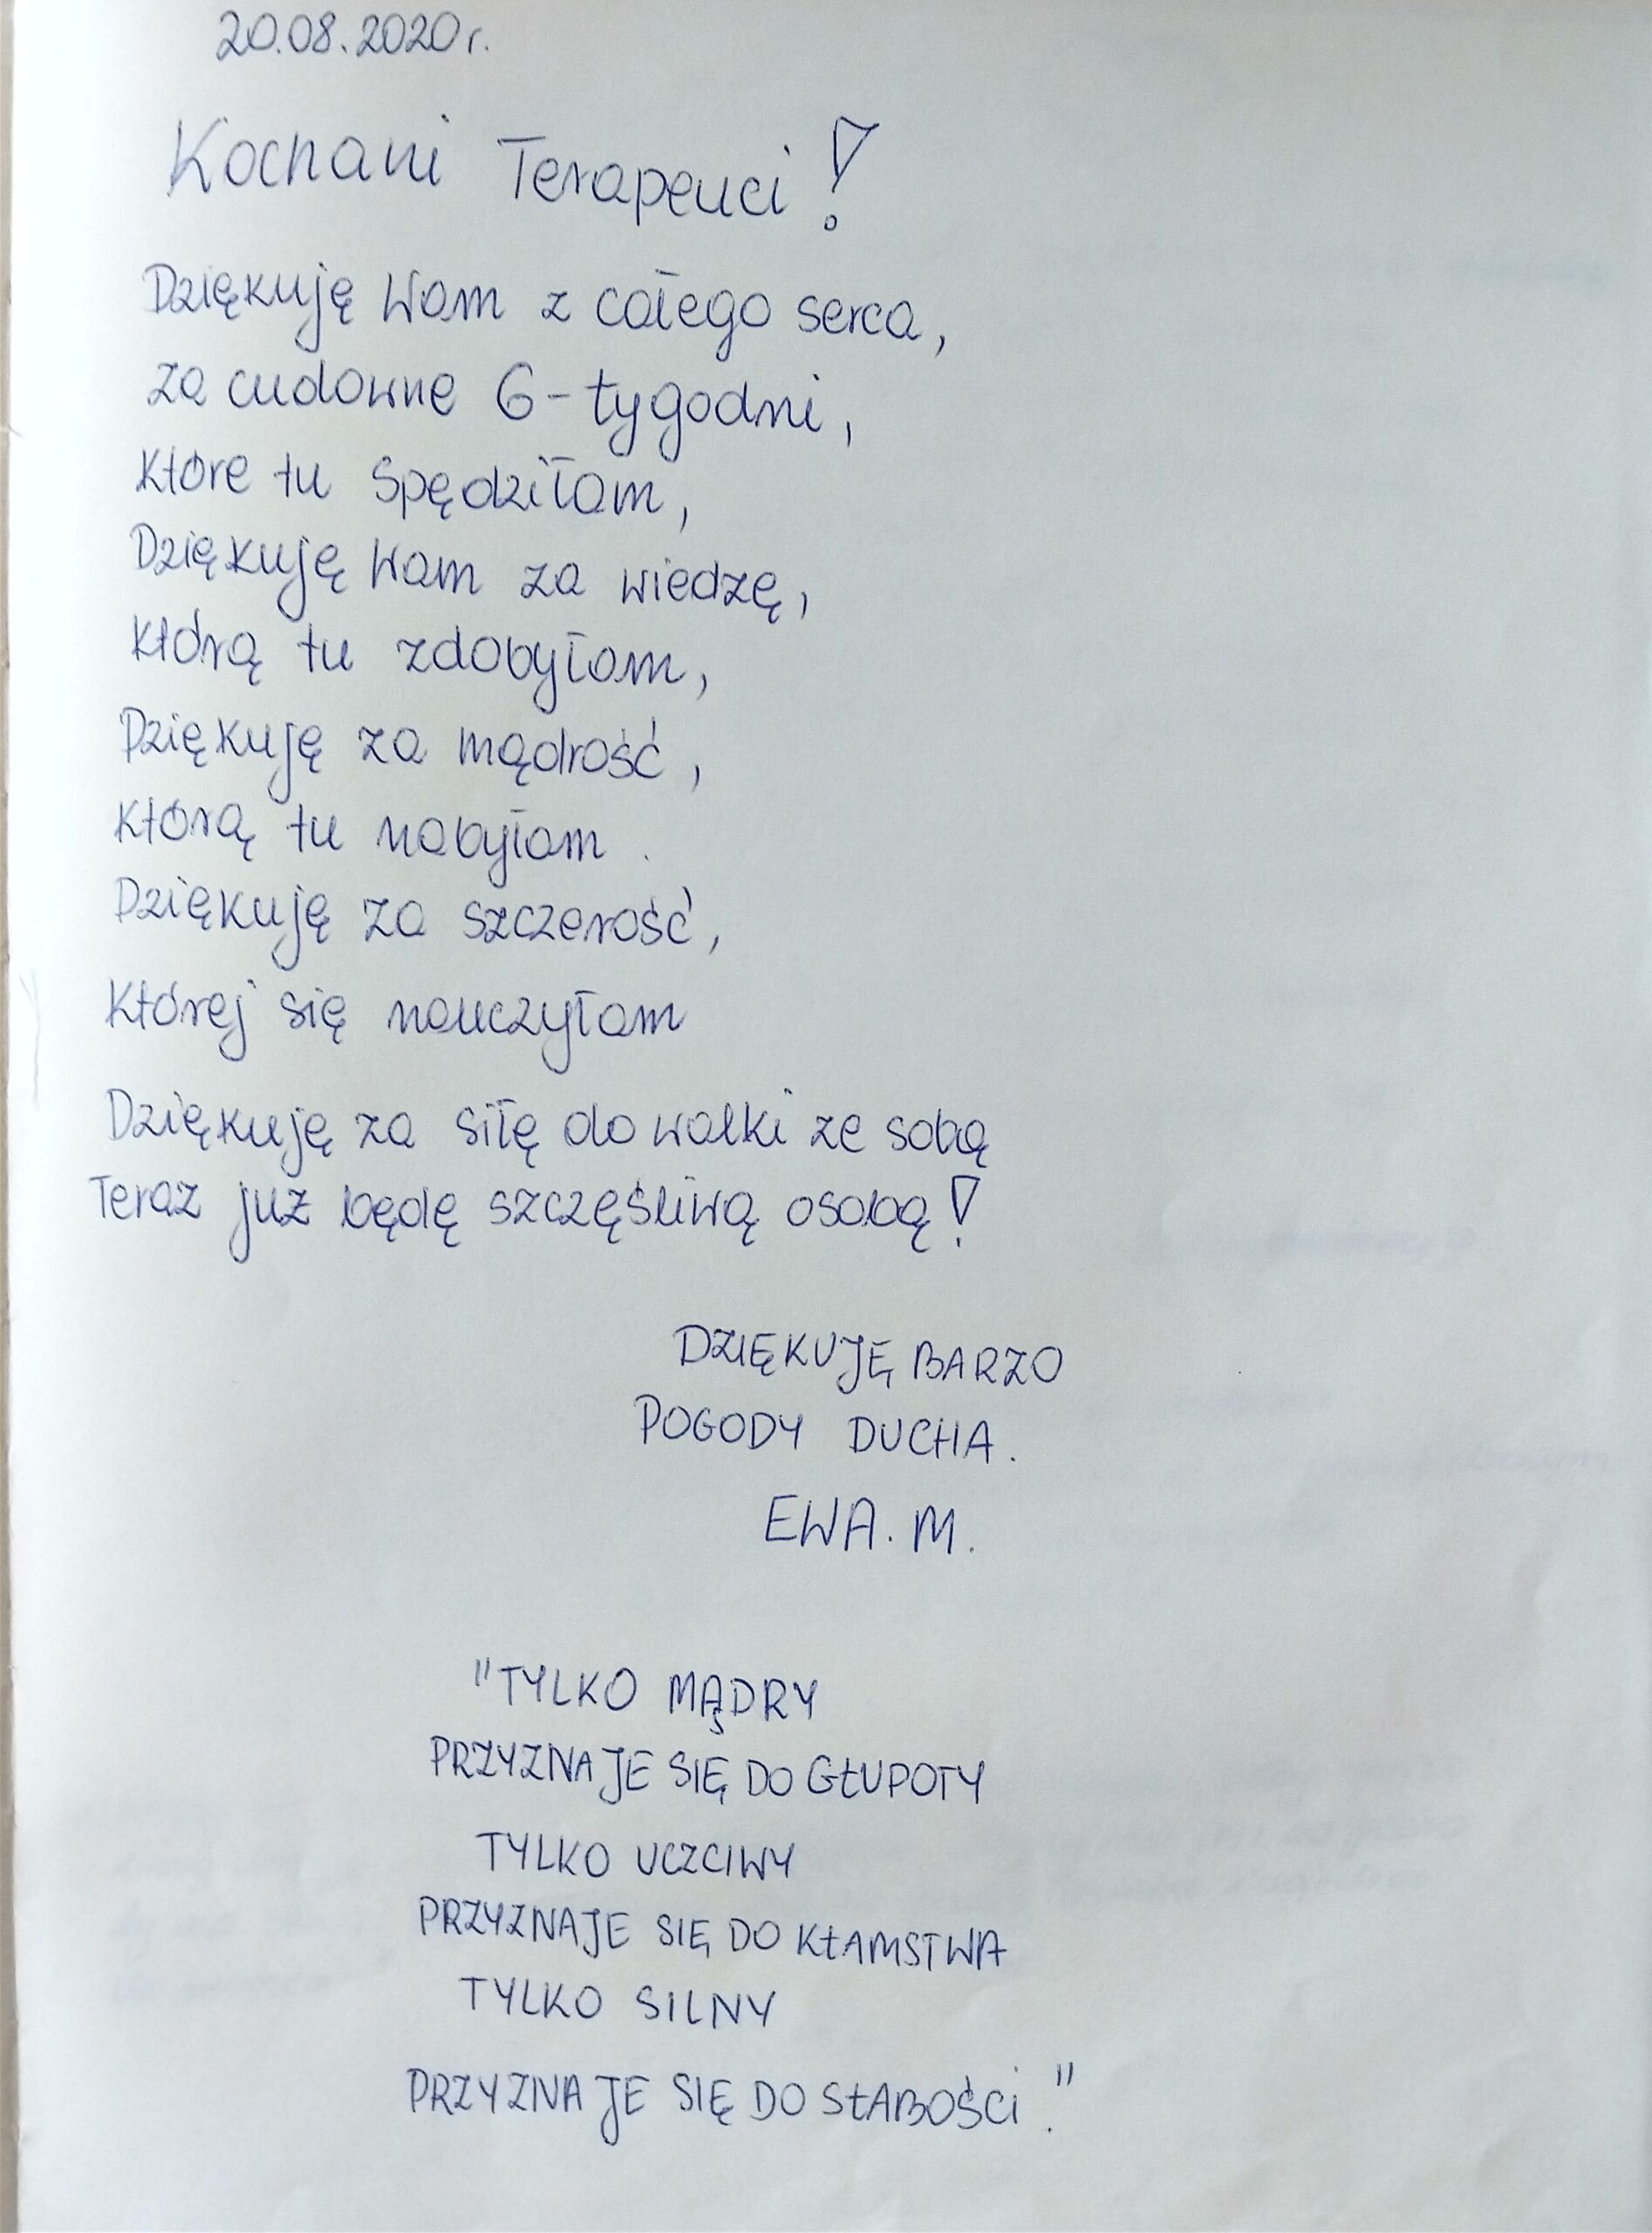 20.08.2020r.
Kochani Terapeuci!
Dziękuję Wam z całego serca,
za cudowne 6-tygodni,
które tu spędziłam,
Dziękuję Wam za wiedzę,
którą tu zdobyłam,
Dziękuję za mądrość,
którą tu nabyłam.
Dziękuję za szczerość,
której się nauczyłam
Dziękuję za siłę do walki ze sobą
Teraz już będę szczęśliwą osobą!
DZIĘKUJĘ BARZO
POGODY DUCHA.
EWA. M.
"TYLKO MĄDRY
PRZYZNAJE SIĘ DO GŁUPOTY
TYLKO UCZCIWY
PRZYZNAJE SIĘ DO KŁAMSTWA
TYLKO SILNY
PRZYZNAJE SIĘ DO SŁABOŚCi."